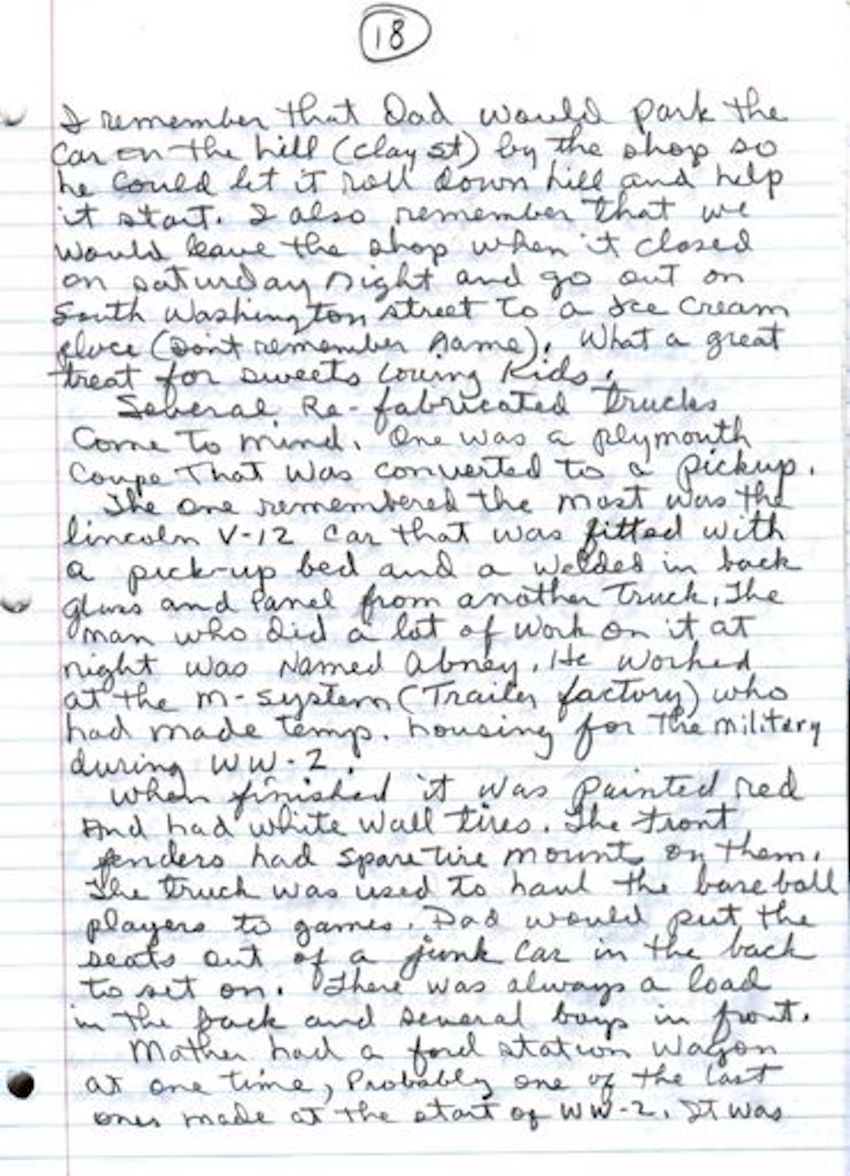 18
I remember that Dad would park the
car on the hill (clay st) by the shop so
he could let it roll down hill and help
it start. I also remember that we
would leave the shop when it closed
on saturday night and go out on
South Washington street to a Ice Cream
place (Don't remember name). What a great
treat for sweets loving kids.
Several Re-fabricated trucks
Come to mind. One was a plymouth
Coupe That was converted to a pickup.
The one remembered the most was the
lincoln V-12 car that was fitted with
a pick-up bed and a welded in back
glass and panel from another truck. The
man who did a lot of work on it at
night was Named Abney. He worked
at the m-system (Trailer factory) who
had made temp. housing for The military
during WW-2.
When finished it was painted red
And had white wall tires. The front
fenders had spare tire mounts on them.
The truck was used to haul the baseball
players to games. Dad would put the
seats out of a junk car in the back
to set on. There was always a load
in the back and several boys in front.
Mother had a ford station wagon
at one time, Probably one of the last
ones made at the start of WW-2. It was